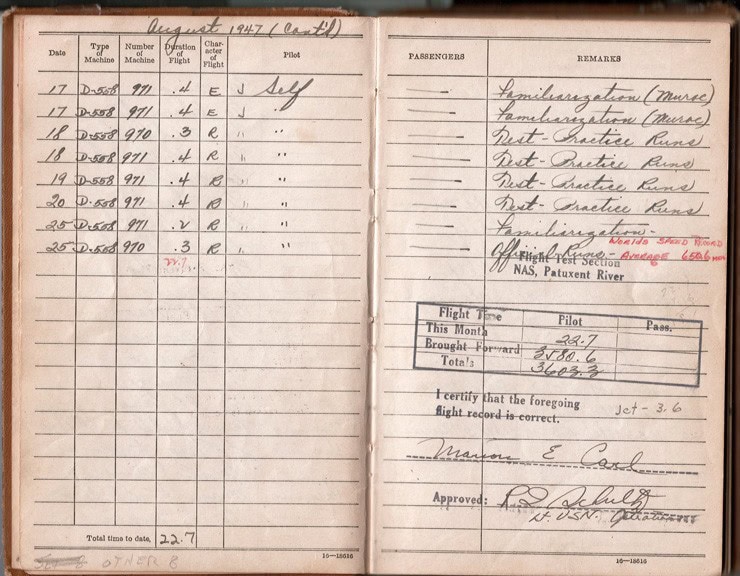 August 1947 (Cont'd)
Date Type of Machine Number of Machine Duration of Flight Character of Flight Pilot PASSENGERS REMARKS
17 D-558 971 .4 E J Self — Familiarization (Muroc)
17 D-558 971 .4 E J " — Familiarization (Muroc)
18 D-558 970 .3 R " " — Test - Practice Runs
18 D-558 971 .4 R " " — Test - Practice Runs
19 D-558 971 .4 R " " — Test - Practice Runs
20 D-558 971 .4 R " " — Test - Practice Runs
25 D-558 971 .2 R " " — Familiarization -
25 D-558 970 .3 R " " — Official Runs - WORLDS SPEED RECORD
AVERAGE 650.6
22.7
Flight Test Section
NAS, Patuxent River
Flight Time Pilot Pass.
This Month 22.7
Brought Forward 3580.6
Totals 3603.3
I certify that the foregoing
flight record is correct.
Jet - 3.6
Marion E Carl
Approved: R S Schultz
Lt. USN.
Total time to date, 22.7
OTHER 8
16—18516 16—18516